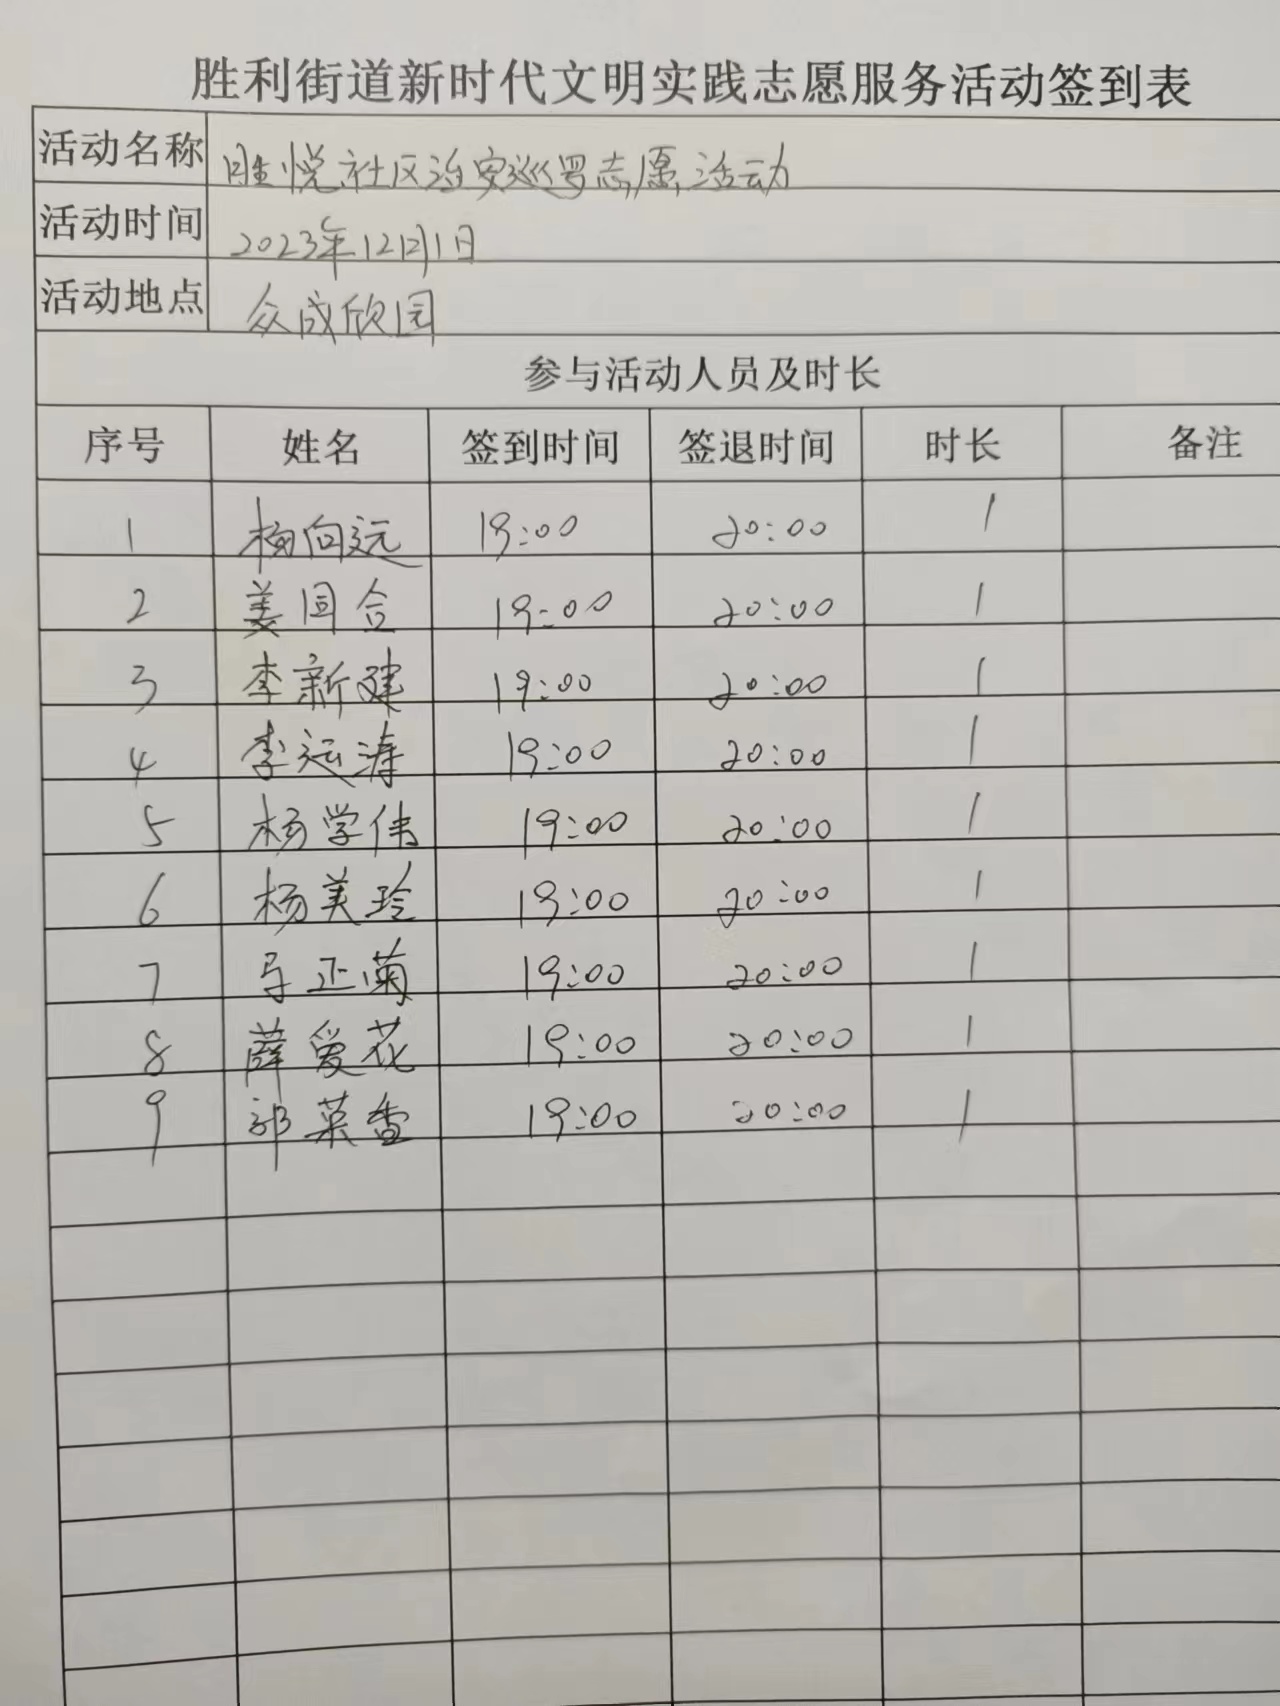 胜利街道新时代文明实践志愿服务活动签到表
活动名称 胜悦社区治安巡逻志愿活动
活动时间 2023年12月1日
活动地点 众成欣园
参与活动人员及时长
序号 姓名 签到时间 签退时间 时长 备注
1 杨向远 19:00 20:00 1
2 姜国合 19:00 20:00 1
3 李新建 19:00 20:00 1
4 李运涛 19:00 20:00 1
5 杨学伟 19:00 20:00 1
6 杨美玲 19:00 20:00 1
7 马正菊 19:00 20:00 1
8 薛爱花 19:00 20:00 1
9 郭菜香 19:00 20:00 1